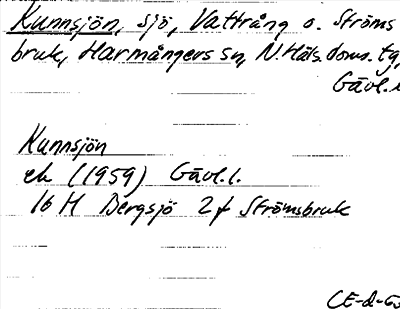 Kunnsjön, sjö, Vattrång o. Ströms
bruk, Harmångers sn, N. Häls. doms. tg,
Gävl.
Kunnsjön
ek (1959) Gävl. l.
16 H Bergsjö 2f Strömsbruk